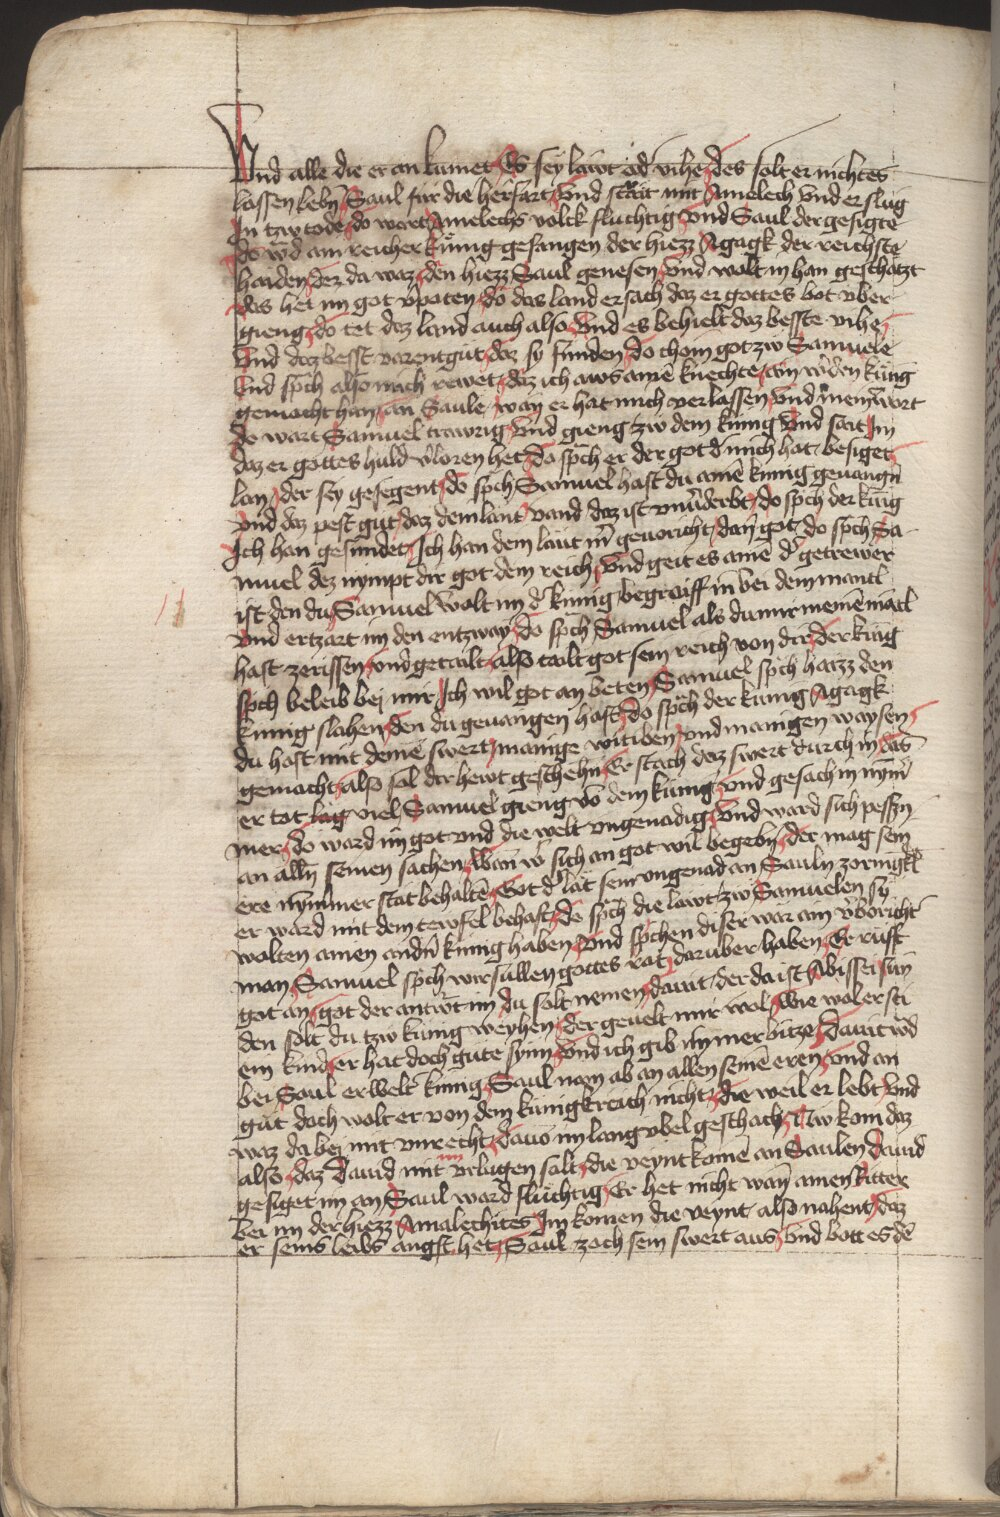 Und alle die er an kumet Es sey läwt od' vihe des solt er nichtes
lassen lebn̄ Saul für die herfart Vnd strait mit Amelech Vnd er slug
In tzw tode do wart Amelechs volck fluchtig vnd Saul der gesigte
do wᵉd ain reicher Kunig gefangen der hiezz Agagk der reichste
haiden dez da waz den hiezz Saul genesen Vnd wolt in han geschatzt
das het im got v̉poten do das land ersach daz er gottes bot vber
gieng do tet daz land auch also Vnd es behielt daz besste vihe
Vnd daz besst varent gut daz sy funden do chom got zw Samuele
Vnd sp̄ch also mich rewet daz ich aws ainē knechte ain w̉den kunig
gemacht han an Saule wan er hat mich verlassen Vnd meinew wort
do wart Samuel trawrig Vnd gieng zw dem kunig Vnd sait Im
daz er gottes huld v̉loren het do sp̄ch er der got d' mich hat besiget
lan der sey gesegent do sp̄ch Samuel hast du ainē kunig geuangn̄
vnd daz pest gut daz dem lant vand daz ist vnủderbt do sp̄ch der kunig
Ich han gesundet Ich han dem läut m̄ geuoricht dan got do sp̄ch Sa-
muel dez nympt dir got dem reich Vnd geit es ainē d' getrewer
ist den du Samuel wolt im d' kunig begraiff in bei dem mantl
vnd ertzart im den entzway do sp̄ch Samuel als du mir meinē mātl
hast zerissen vnd getailt also tailt got sein reich von dir der kunig
sp̄ch beleib bei mir Ich wil got an beten Samuel sp̄ch haizz den
kunig slahen den du geuangen hast do sp̄ch der kunig Agagk
du hast mit deinē swert manige witiben vnd manigen waysen
gemacht also sol dir hewt geschehn Er stach daz swert durch in das
er tot lag viel Samuel gieng vō dem kunig vnd gesach in nym̄
mer do ward im got vnd die welt vngenadig Vnd ward sich pessern
an alln̄ seinen sachen Wan w' sich an got wil begebn̄ der mag sein
ere nymmer stat behaltē Got d' lat sein vngenad an Sauln zornigkt
er ward mit dem tewfel behaft do sp̄ch die läwt zw Samuelen sy
wolten ainen andn̄ kunig haben Vnd sp̄chen diser wär ain v̉boricht
man Samuel sp̄ch wir sullen gottes rat daruber haben Er rüfft
got an got der antw̉t im du solt nemen dauit der da ist Abissei sun
den solt du tzw kunig weyhen der geuelt mir wol Wie wol er sei
ein kind er hat doch gute synn Vnd ich gib im mer bitze Dauit w̉d
bei Saul erwelt kunig Saul nam ab an allen seinē eren vnd an
gut doch wolt er von dem kunigkreich nicht die weil er lebt Vnd
waz da bei mit vnrecht dauō im lang vbel geschach Nw kom daz
also daz Dauid mit im vrlugen solt die veynt komē an Saulen dauid
gesiget im an Saul ward fluchtig Er het nicht wan̄ ainen Ritter
bei im der hiezz Amalechites Im komen die veynt also nahent daz
er seins leibs angst het Saul zoch sein swert aus Vnd bott es dē